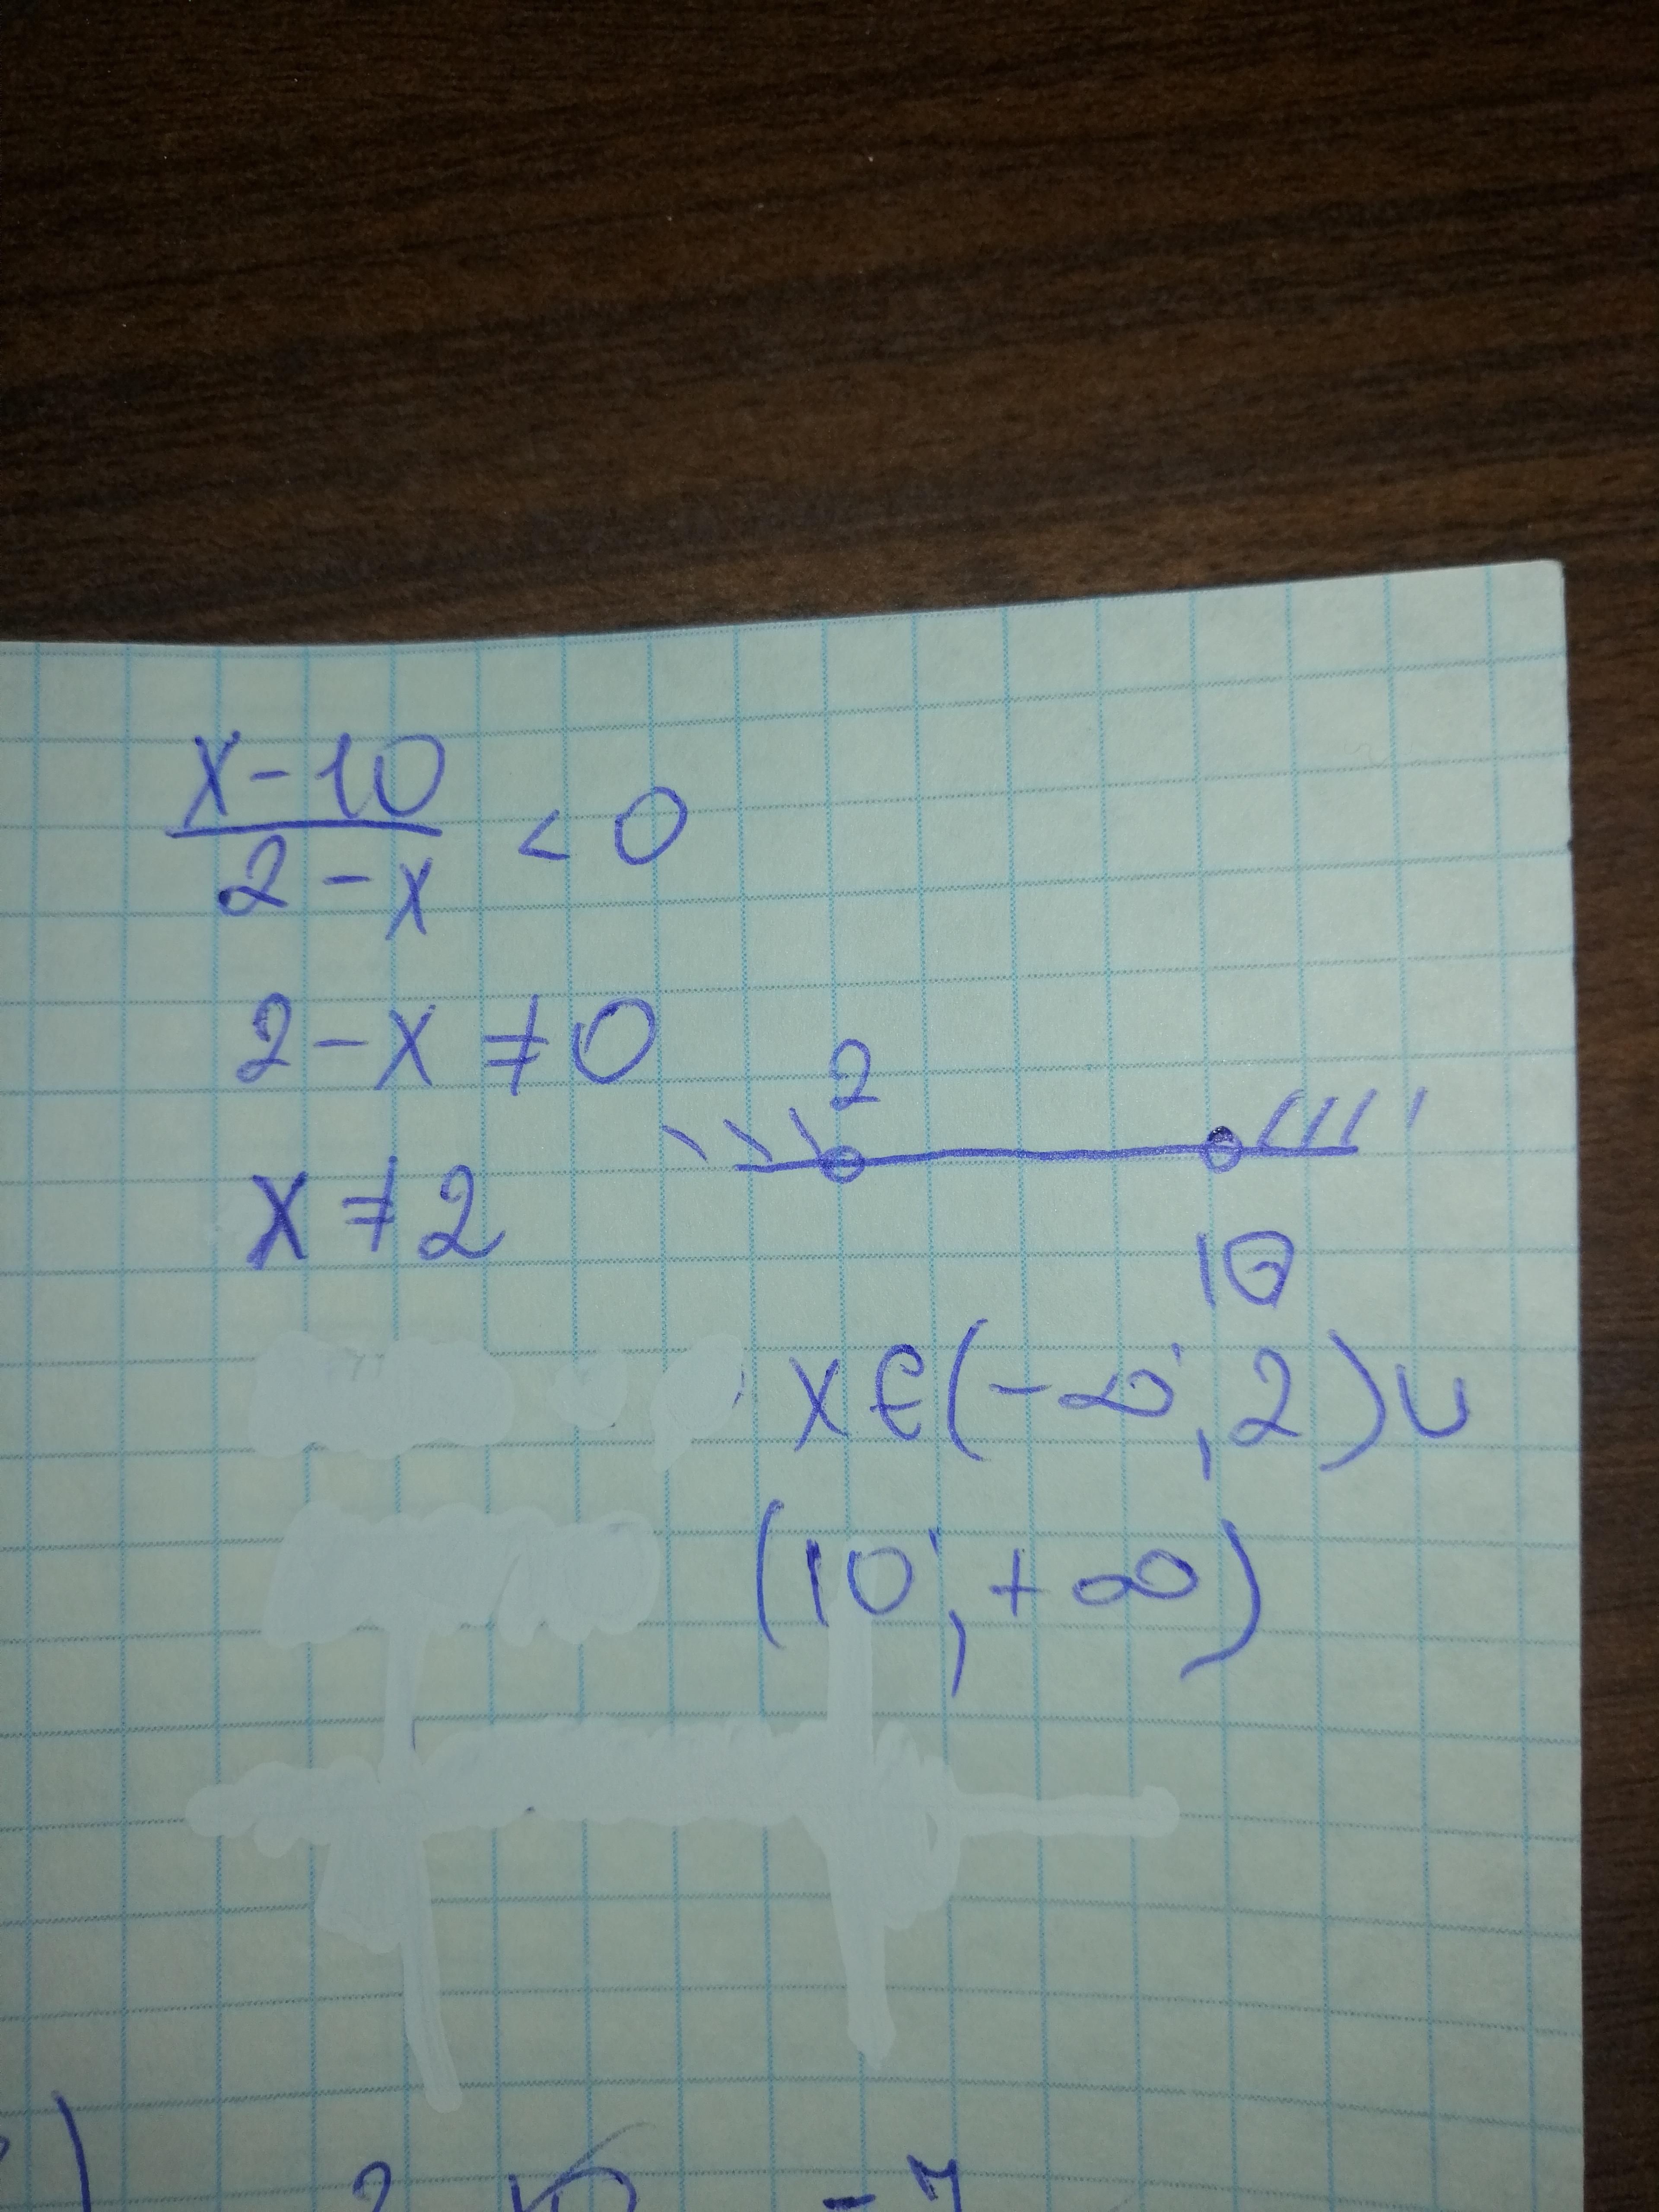 x-10
2-x < 0
2-x ≠ 0
x ≠ 2
2
10
x∈(-∞; 2)∪
(10; +∞)